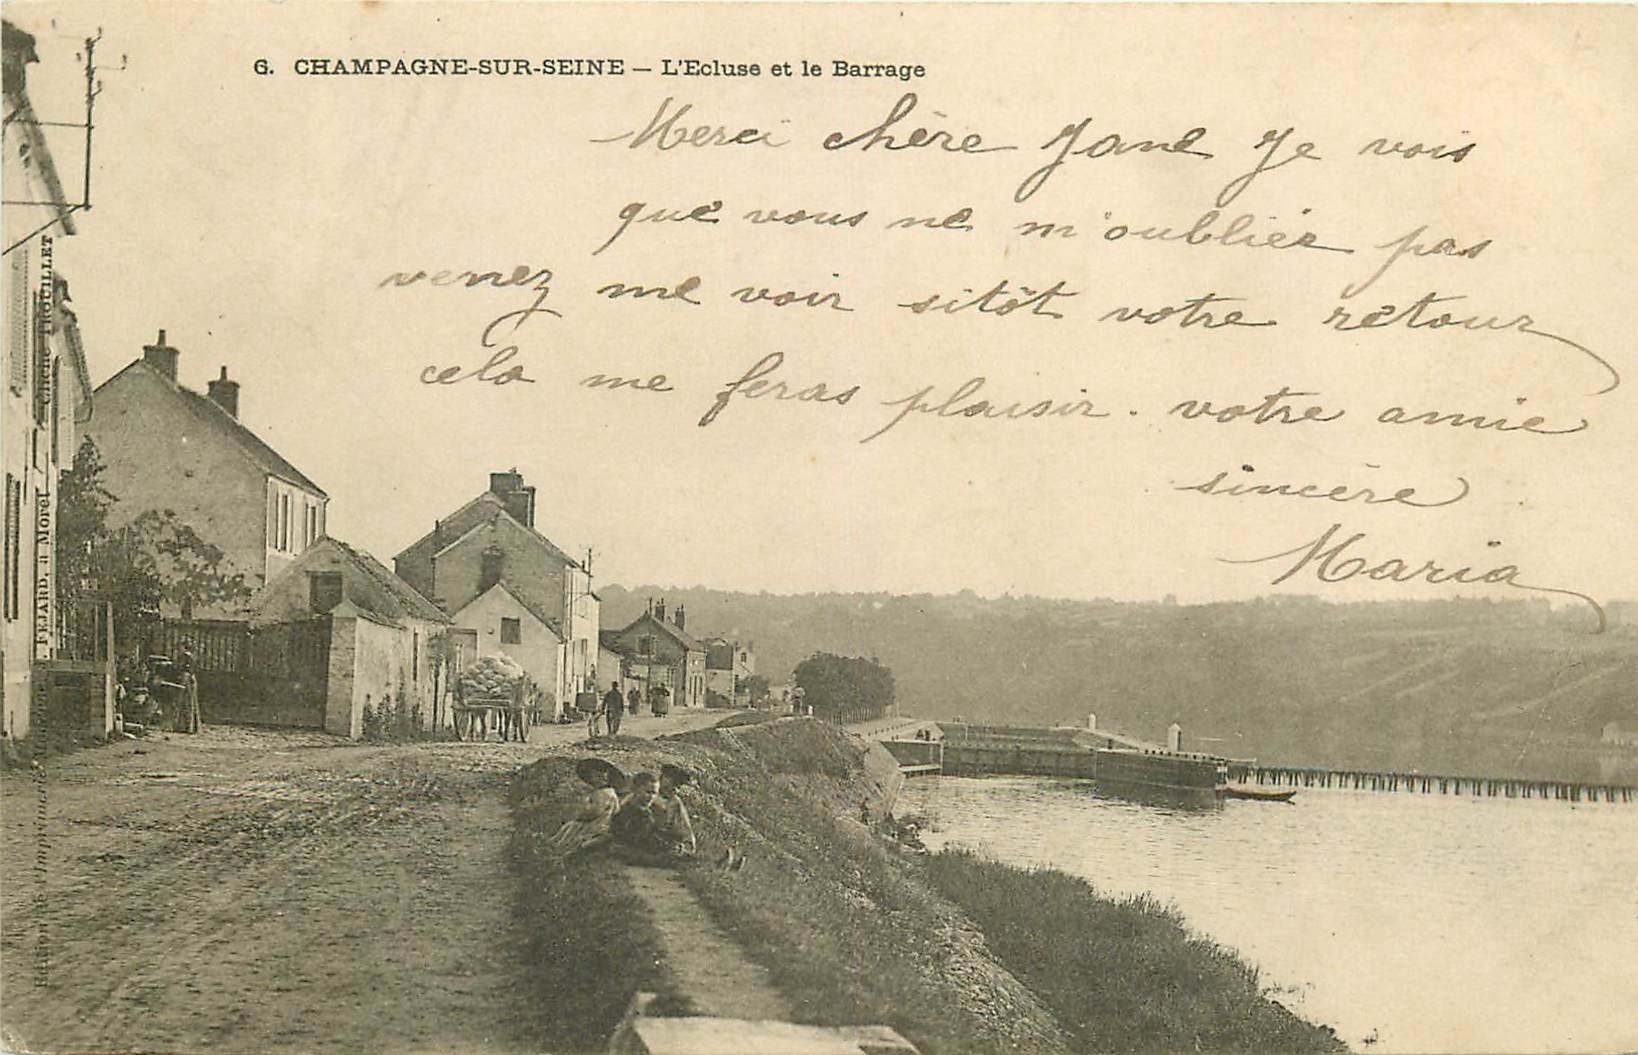 6. CHAMPAGNE-SUR-SEINE — L'Ecluse et le Barrage
Merci chère Jane Je vois
que vous ne m'oublier pas
venez me voir sitôt votre retour
cela me feras plaisir. votre amie
sincère
Maria
Cliché THOUILLET
FEJARD, à Moret
Edition de l'Imprimerie